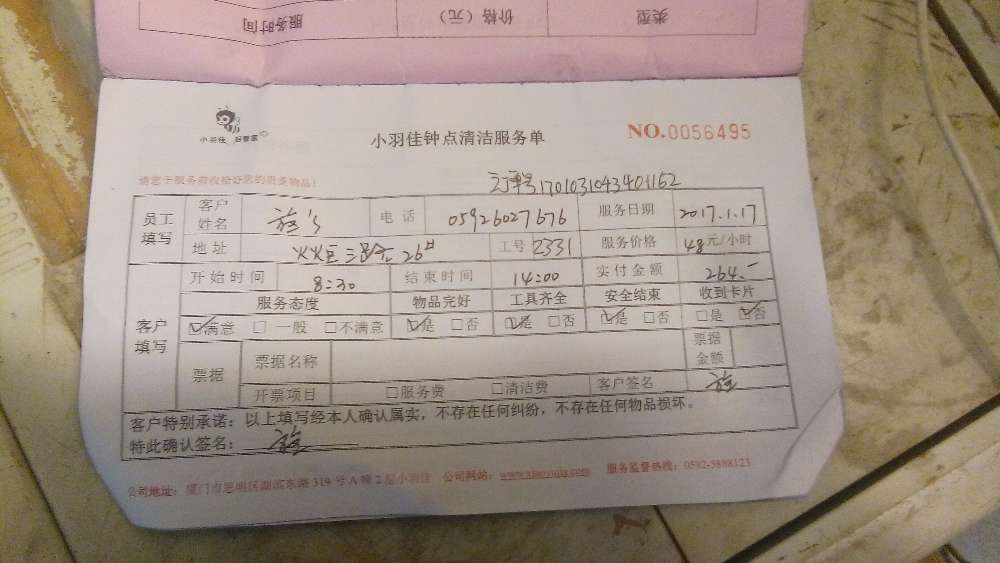 服务时间 价格（元） 类型
小羽佳 好管家
小羽佳钟点清洁服务单
NO.0056495
请您于服务前收拾好您的贵重物品！
订单号1701031043401152
员工填写 客户姓名 电话 05926027676 服务日期 2017.1.17
地址 26# 工号 2331 服务价格 48元/小时
客户填写 开始时间 8:30 结束时间 14:00 实付金额 264.-
服务态度 物品完好 工具齐全 安全结束 收到卡片
☑满意 □一般 □不满意 ☑是 □否 ☑是 □否 ☑是 □否 □是 ☑否
票据 票据名称 票据金额
开票项目 □服务费 □清洁费 客户签名
客户特别承诺：以上填写经本人确认属实，不存在任何纠纷，不存在任何物品损坏。
特此确认签名：
公司地址：厦门市思明区湖滨东路319号A幢2层小羽佳 公司网站：www.xiaoyujia.com 服务监督热线：0592-5888123